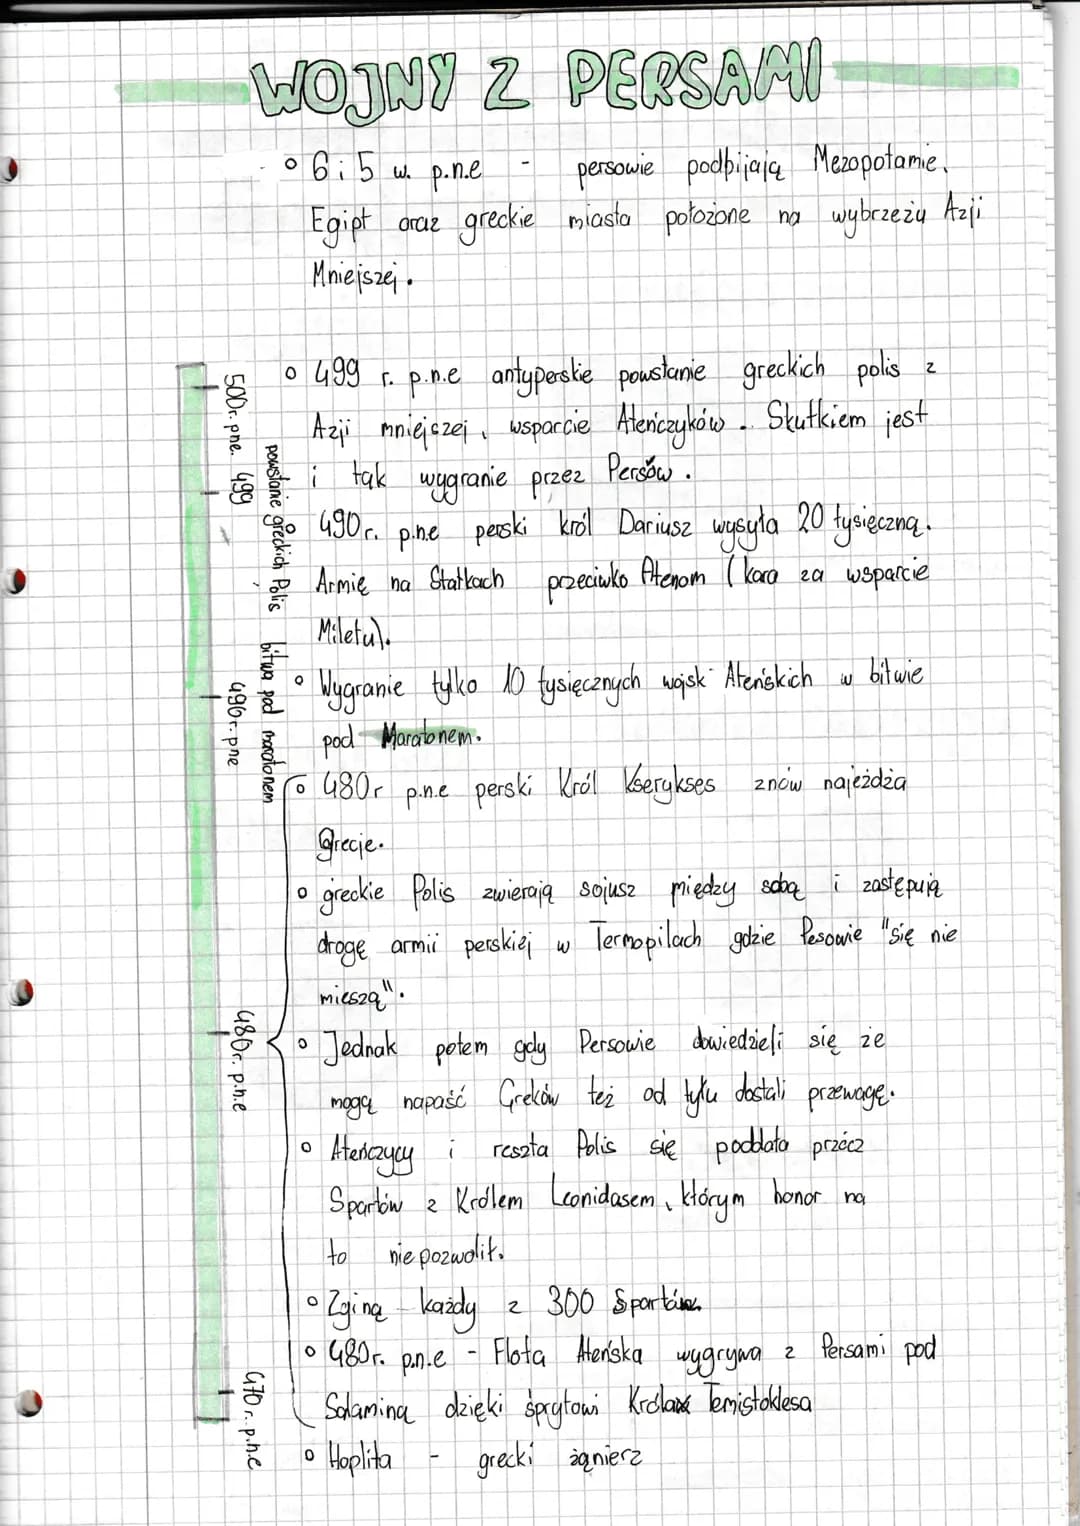 WOJNY Z PERSAMI
6 i 5 w. p.n.e - persowie podbijają Mezopotamie,
Egipt oraz greckie miasta położone na wybrzeżu Azji
Mniejszej.
499 r. p.n.e antyperskie powstanie greckich polis z
Azji mniejszej, wsparcie Ateńczyków. Skutkiem jest
i tak wygranie przez Persów.
490r. p.n.e perski król Dariusz wysyła 20 tysięczną.
Armię na Statkach przeciwko Atenom (kara za wsparcie
Miletu).
Wygranie tylko 10 tysięcznych wojsk Ateńskich w bitwie
pod Maratonem.
480r p.n.e perski Król Kserykses znów najeżdża
Grecje.
greckie Polis zwierają sojusz między sobą i zastępują
drogę armii perskiej w Termopilach gdzie Pesowie "się nie
mieszą".
Jednak potem gdy Persowie dowiedzieli się że
mogą napaść Greków też od tyłu dostali przewagę.
Ateńczycy i reszta Polis się poddała przócz
Spartów z Królem Leonidasem, którym honor na
to nie pozwolił.
Zginą każdy z 300 Spartan
480r. p.n.e - Flota Ateńska wygrywa z Persami pod
Salaminą dzięki sprytowi Króla Temistoklesa
Hoplita - grecki żąnierz
500r. pne.
499
powstanie greckich Polis
490r. pne
bitwa pod maratonem
480r. p.n.e
470 r. p.n.e